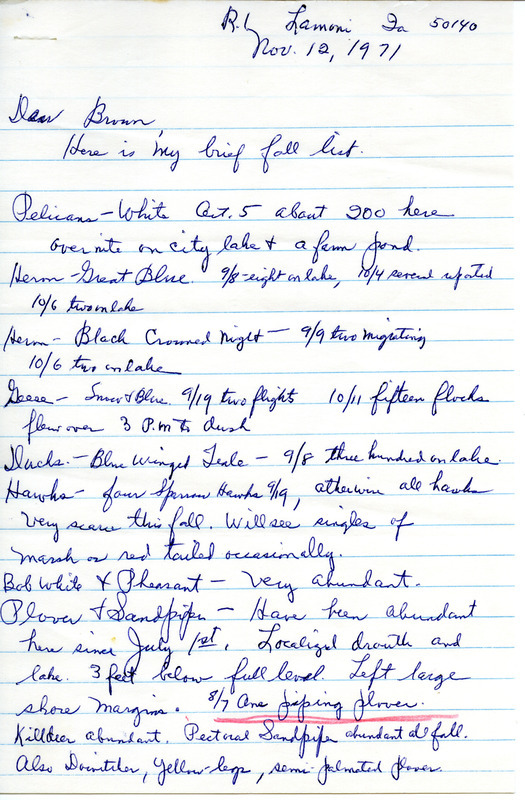 R. 1, Lamoni Ia 50140
Nov. 12, 1971
Dear Brown,
Here is my brief fall list.
Pelicans - White Oct. 5 about 200 here
over nite on city lake & a farm pond.
Heron - Great Blue. 9/8 - eight on lake, 10/4 several reported
10/6 two on lake
Heron - Black Crowned Night - 9/9 two migrating
10/6 two on lake
Geese - Snow & Blue. 9/19 two flights 10/11 fifteen flocks
flew over 3 P.M. to dusk
Ducks. - Blue Winged Teale - 9/8 three hundred on lake.
Hawks - four Sparrow Hawks 9/19, otherwise all hawks
very scarce this fall. Will see singles of
marsh or red tailed occasionally.
Bob White & Pheasant - Very abundant.
Plover & Sandpiper - Have been abundant
here since July 1st. Localized drouth and
lake 3 feet below full level. Left large
shore margins. 8/7 One piping plover.
Killdeer abundant. Pectoral Sandpiper abundant all fall.
Also Dowitcher, Yellow-legs, semi-palmated plover.